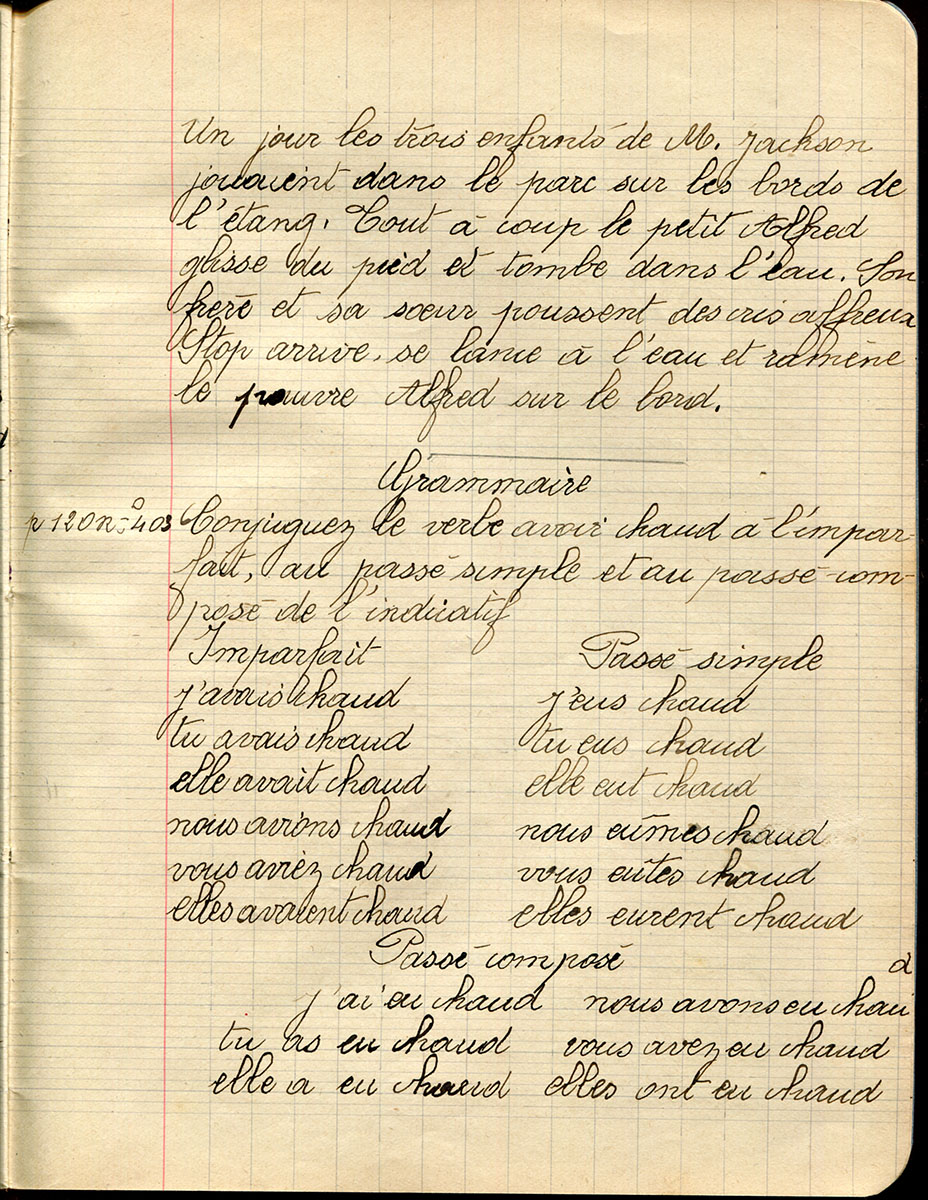 Un jour les trois enfants de M. Jackson
jouaient dans le parc sur les bords de
l'étang. Tout à coup le petit Alfred
glisse du pied et tombe dans l'eau. Son
frère et sa sœur poussent des cris affreux
Stop arrive, se lance à l'eau et ramène
le pauvre Alfred sur le bord.
Grammaire
p 120 n° 403 Conjuguez le verbe avoir chaud à l'impar-
fait, au passé simple et au passé com-
posé de l'indicatif
Imparfait Passé simple
j'avais chaud j'eus chaud
tu avais chaud tu eus chaud
elle avait chaud elle eut chaud
nous avions chaud nous eûmes chaud
vous aviez chaud vous eûtes chaud
elles avaient chaud elles eurent chaud
Passé composé
j'ai eu chaud nous avons eu chaud
tu as eu chaud vous avez eu chaud
elle a eu chaud elles ont eu chaud